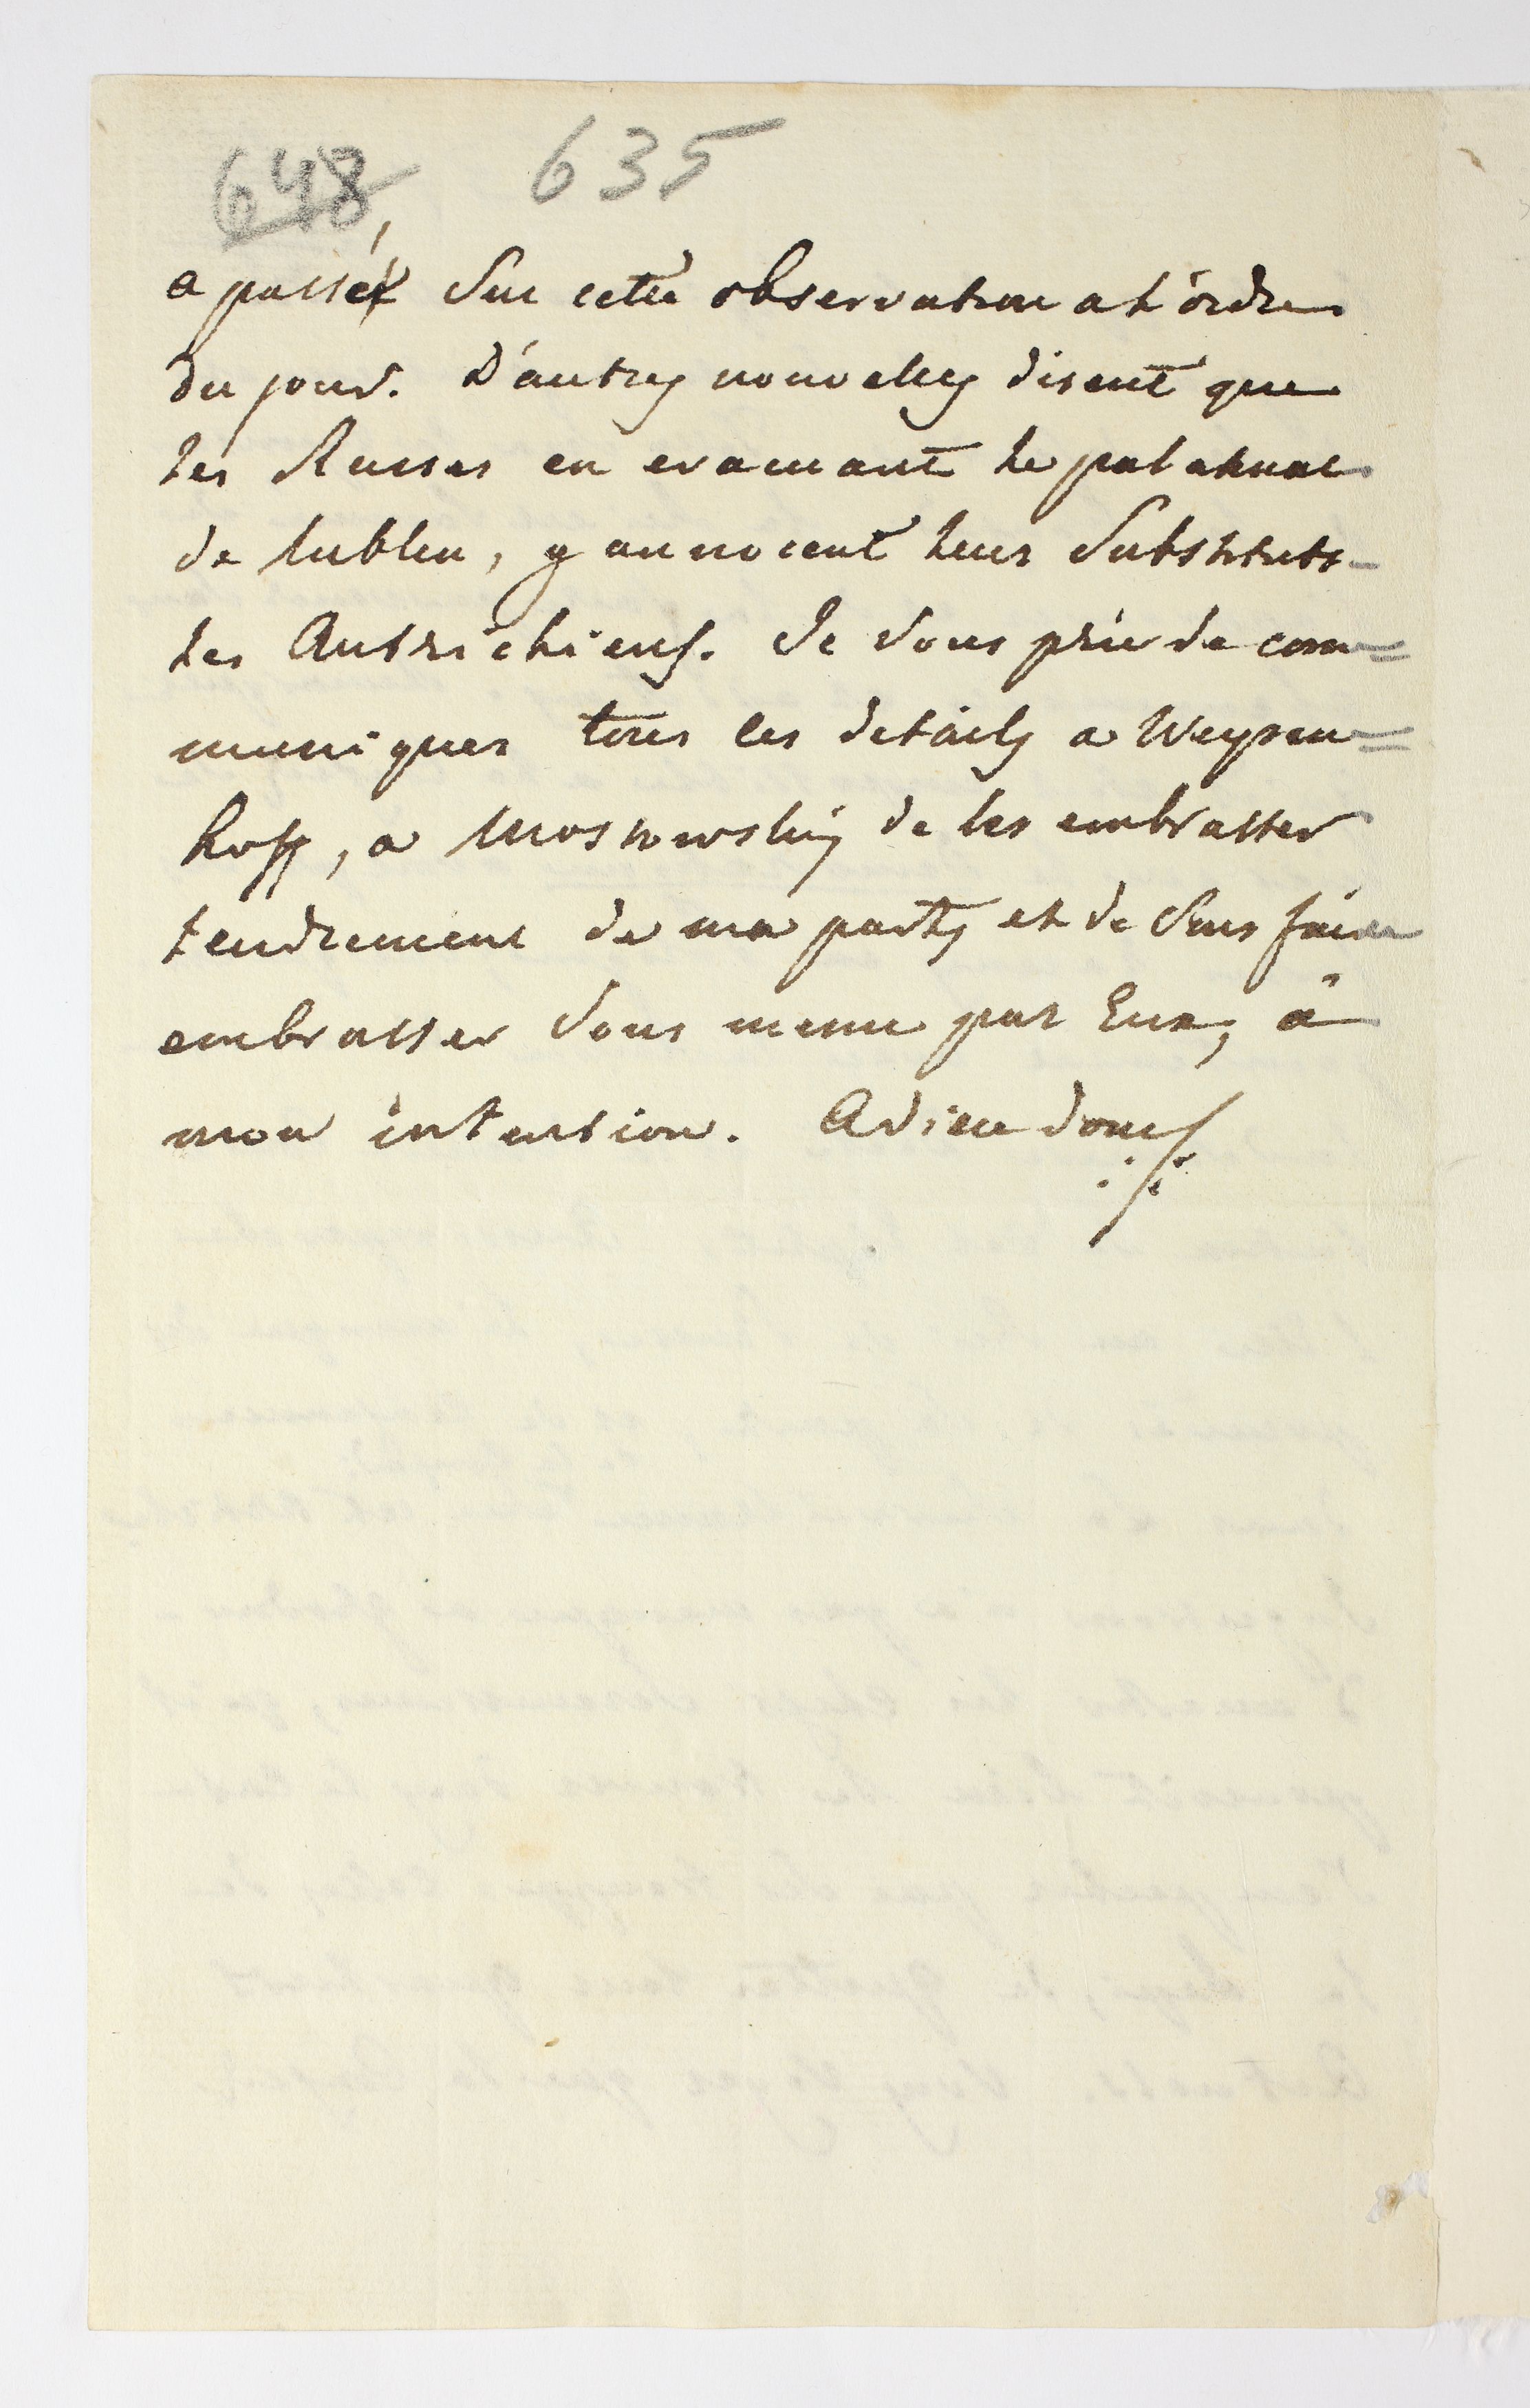 648 635
a passé sur cette observation a l'ordre
du jour. D'autres nouvelles disent que
les Russes en evacuant le palatinat
de Lublin, y annoncent leurs Substituts
les Autrichiens. Je vous prie de com=
muniquer tous les details a Weyssen=
hoff, a Mostowsky de les embrasser
tendrement de ma part, et de vous faire
embrasser vous meme par Eux, à
mon intention. Adieu donc